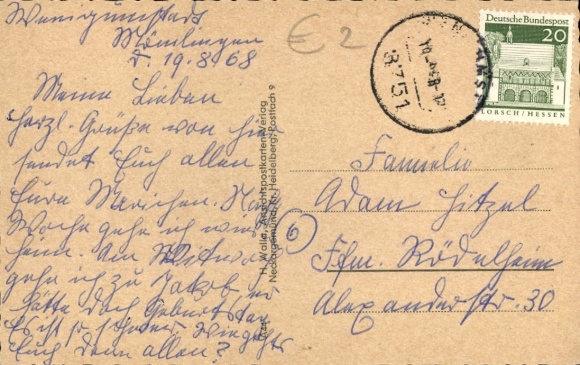 Wenigumstadt
Mömlingen
d. 19.8.68
Meine Lieben
herzl. Grüße von hier
sendet Euch allen
Eure Mariechen.
Woche gehe ich wieder
heim. Am Mittwoch
gehe ich zu Jakob er
hatte doch Geburtstag
Es ist so schwer. Wie gehts
Euch denn allen?
€ 2
8751
Deutsche Bundespost
20
LORSCH/HESSEN
H. Walla, Ansichtspostkarten-Verlag
Neckargemünd, Kr. Heidelberg, Postfach 9
6
Familie
Adam Hitzel
Ffm. Rödelheim
Alexanderstr. 30